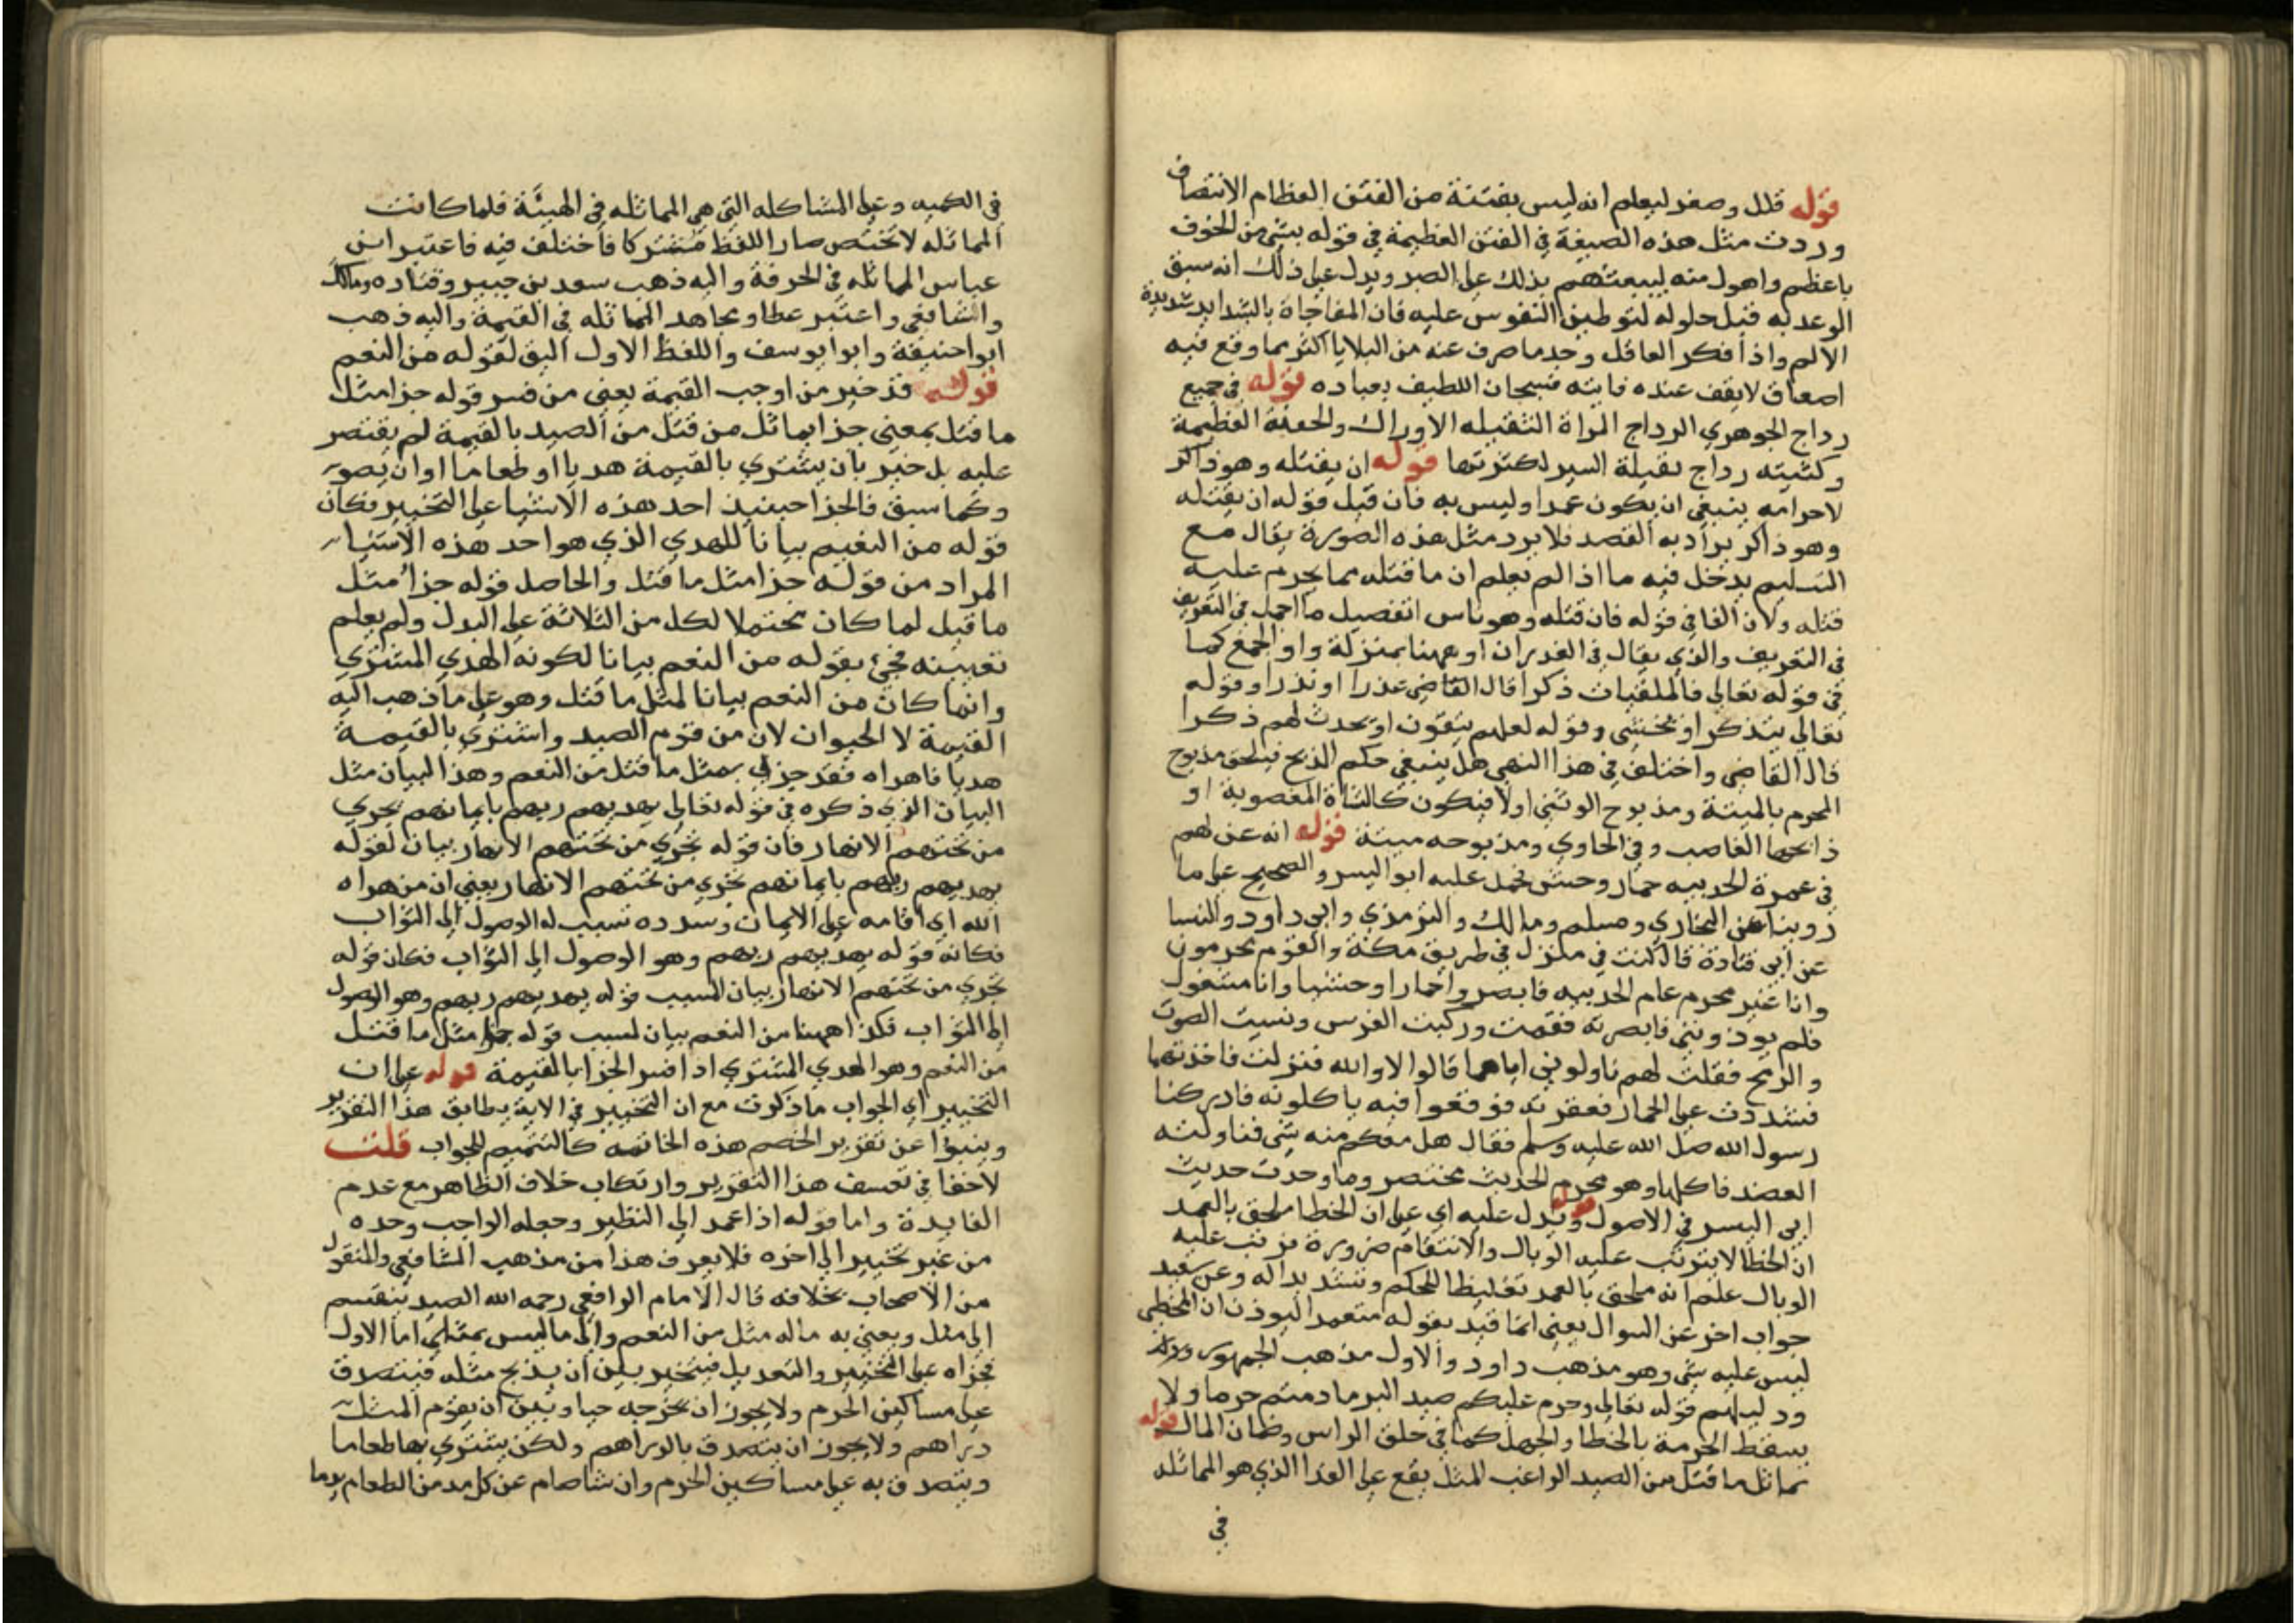 قوله قلل وصغر ليعلم انه ليس بفتنة من الفتن العظام الانتصاف
وردت مثل هذه الصيغة في الفتن العظيمة في قوله بشي من الخوف
باعظم واهول منه ليبعثهم بذلك على الصبر ويدل على ذلك انه سبق
الوعد به قبل حلوله لتوطين النفوس عليه فان المفاجاة بالشدايد شديدة
الالم واذا فكر العاقل وجد ما صرف عنه من البلايا اكثر مما وقع فيه
اضعاف لا يقف عنده غايته فسبحان اللطيف بعباده قوله في جميع
رداج الجوهري الرداج المراة الثقيله الاوراك والجفنة العظيمة
وكتيبته رداج ثقيلة السير لكثرتها قوله ان يقتله وهو ذاكر
لاحرامه ينبغي ان يكون عمدا وليس به فان قيل قوله ان يقتله
وهو ذاكر يراد به القصد فلا يرد مثل هذه الصورة يقال مع
التسليم يدخل فيه ما اذا لم يعلم ان ما قتله مما يحرم عليه
قتله ولان الفا في قوله فان قتله وهو ناس اتفصيل ما اجمل في التعريف
في التعريف والذي يقال في العذر ان او ههنا بمنزلة واو الجمع كما
في قوله تعالى فالملقيات ذكرا قال القاضي عذرا او نذرا وقوله
تعالى يتذكر او يخشى وقوله لعلهم يتقون او يحدث لهم ذكرا
قال القاضي واختلف في هذا النهي هل ينبغي حكم الذبح فيلحق مذبوح
المحرم بالميتة ومذبوح الوثني اولا فيكون كالشاة المغصوبة او
ذابحها الغاصب وفي الحاوي ومذبوحه ميتة قوله انه عن لهم
في عمرة الحديبيه حمار وحش فحمل عليه ابو اليسر والصحيح على ما
روينا عن البخاري ومسلم ومالك والترمذي وابي داود والنسا
عن ابي قتادة قال كنت في منزل في طريق مكة والقوم محرمون
وانا غير محرم عام الحديبيه فابصروا حمارا وحشيا وانا مشغول
فلم يوذونني فابصرته فقمت وركبت الفرس ونسيت الصوت
والرمح فقلت لهم ناولوني اياهما قالوا لا والله فنزلت فاخذتهما
فشددت على الحمار فعقرته فوقعوا فيه ياكلونه فادركنا
رسول الله صلى الله عليه وسلم فقال هل معكم منه شي فناولته
العضد فاكلها وهو محرم الحديث مختصر وما وجدت حديث
ابي اليسر في الاصول قوله ويدل عليه اي على ان الخطا ملحق بالعمد
ان الخطا لا يترتب عليه الوبال والانتقام ضرورة فرتب عليه
الوبال علم انه ملحق بالعمد تغليظا للحكم وتشديدا له وعن سعيد
جواب اخر عن السوال يعني انما قيد بقوله متعمدا ليوذن ان المخطي
ليس عليه شي وهو مذهب داود والاول مذهب الجمهور
ودليلهم قوله تعالى وحرم عليكم صيد البر ما دمتم حرما ولا
يسقط الحرمة بالخطا والجهل كما في حلق الراس وضمان المال قوله
يماثل ما قتل من الصيد الراغب المثل يقع على القدر الذي هو المماثله
في
في الكميه وعلى المشاكله التي هي المماثله في الهيئة فلما كانت
المماثله لا تختص صار اللفظ مشتركا فاختلف فيه فاعتبر ابن
عباس المماثله في الخرقة واليه ذهب سعد بن جبير وقتاده ومالك
والشافعي واعتبر عطا ومجاهد المماثله في القيمة واليه ذهب
ابو احنيفة وابو ايوسف واللفظ الاول اليق لقوله من النعم
قوله قد خير من اوجب القيمة يعني من فسر قوله جزا مثل
ما قتل بمعنى جزا يماثل من قتل من الصيد بالقيمة لم يقتصر
عليه بل خير بان يشتري بالقيمة هديا او طعاما او ان يصوم
وكما سبق فالجزا حينيذ احد هذه الاشيا على التخيير فكان
قوله من النعيم بيانا للهدي الذي هو احد هذه الاشيا
المراد من قوله جزا مثل ما قتل والحاصل قوله جزا مثل
ما قبل لما كان محتملا لكل من الثلاثة على البدل ولم يعلم
تعيينه فجئ بقوله من النعم بيانا لكونه الهدي المشتري
وانما كان من النعم بيانا لمثل ما قتل وهو على ما ذهب اليه
القيمة لا الحيوان لان من قوم الصيد واشتري بالقيمة
هديا فاهداه فقد جزي بمثل ما قتل من النعم وهذا البيان مثل
البيان الذي ذكره في قوله تعالى يهديهم ربهم بايمانهم تجري
من تحتهم الانهار فان قوله تجري من تحتهم الانهار بيان لقوله
يهديهم ربهم بايمانهم تجري من تحتهم الانهار يعني ان من هداه
الله اي اقامه على الايمان وسدده تسبب له الوصول الى الثواب
فكانه قوله يهديهم ربهم وهو الوصول الى الثواب فكان قوله
تجري من تحتهم الانهار بيان السبب قوله يهديهم ربهم وهو الوصول
الى الثواب فكذا ههنا من النعم بيان لسبب قوله جزا مثل ما قتل
من النعم وهو الهدي المشتري اذا فسر الجزا بالقيمة قوله على ان
التخيير اي الجواب ما ذكرت مع ان التخيير في الاية يطابق هذا التقرير
وينبوا عن تقرير الخصم هذه الخاتمه كالتتميم للجواب قلت
لاخفا في تعسف هذا التقرير وارتكاب خلاف الظاهر مع عدم
الفايدة واما قوله اذا عمد الى النظير وجعله الواجب وحده
من غير تخيير الى اخره فلا يعرف هذا من مذهب الشافعي والمنقول
من الاصحاب بخلافه قال الامام الرافعي رحمه الله الصيد ينقسم
الى مثل ويعني به ماله مثل من النعم والى ما ليس بمثلي اما الاول
فجزاه على التخيير والتعديل فيتخير بين ان يذبح مثله فيتصدق
على مساكين الحرم ولا يجوز ان يخرجه حيا وبين ان يقوم المثل
دراهم ولا يجوز ان يتصدق بالدراهم ولكن يشتري بها طعاما
ويتصدق به على مساكين الحرم وان شا صام عن كل مد من الطعام يوما